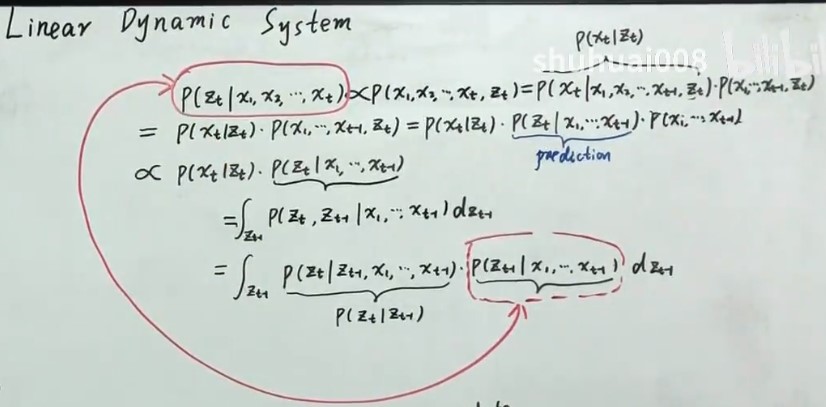 Linear Dynamic System
P(xt|zt)
shuhuai008 bilibili
P(zt|x1,x2,⋯,xt) ∝ P(x1,x2,⋯,xt,zt) = P(xt|x1,x2,⋯,xt-1,zt)·P(x1,⋯,xt-1,zt)
= P(xt|zt)·P(x1,⋯,xt-1,zt) = P(xt|zt)·P(zt|x1,⋯,xt-1)·P(x1,⋯,xt-1)
prediction
∝ P(xt|zt)·P(zt|x1,⋯,xt-1)
= ∫zt-1 P(zt,zt-1|x1,⋯,xt-1)dzt-1
= ∫zt-1 P(zt|zt-1,x1,⋯,xt-1)·P(zt-1|x1,⋯,xt-1) dzt-1
P(zt|zt-1)